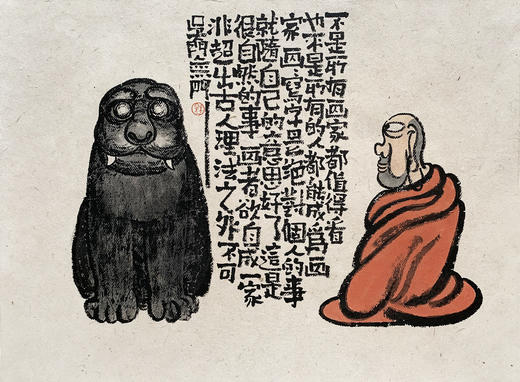 不是所有画家都值得看
也不是所有的人都能成為画
家画寫字是絕對個人的事
就隨自己的意思好了這是
很自然的事画者欲自成一家
非超出古人理法之外不可
吳門無門